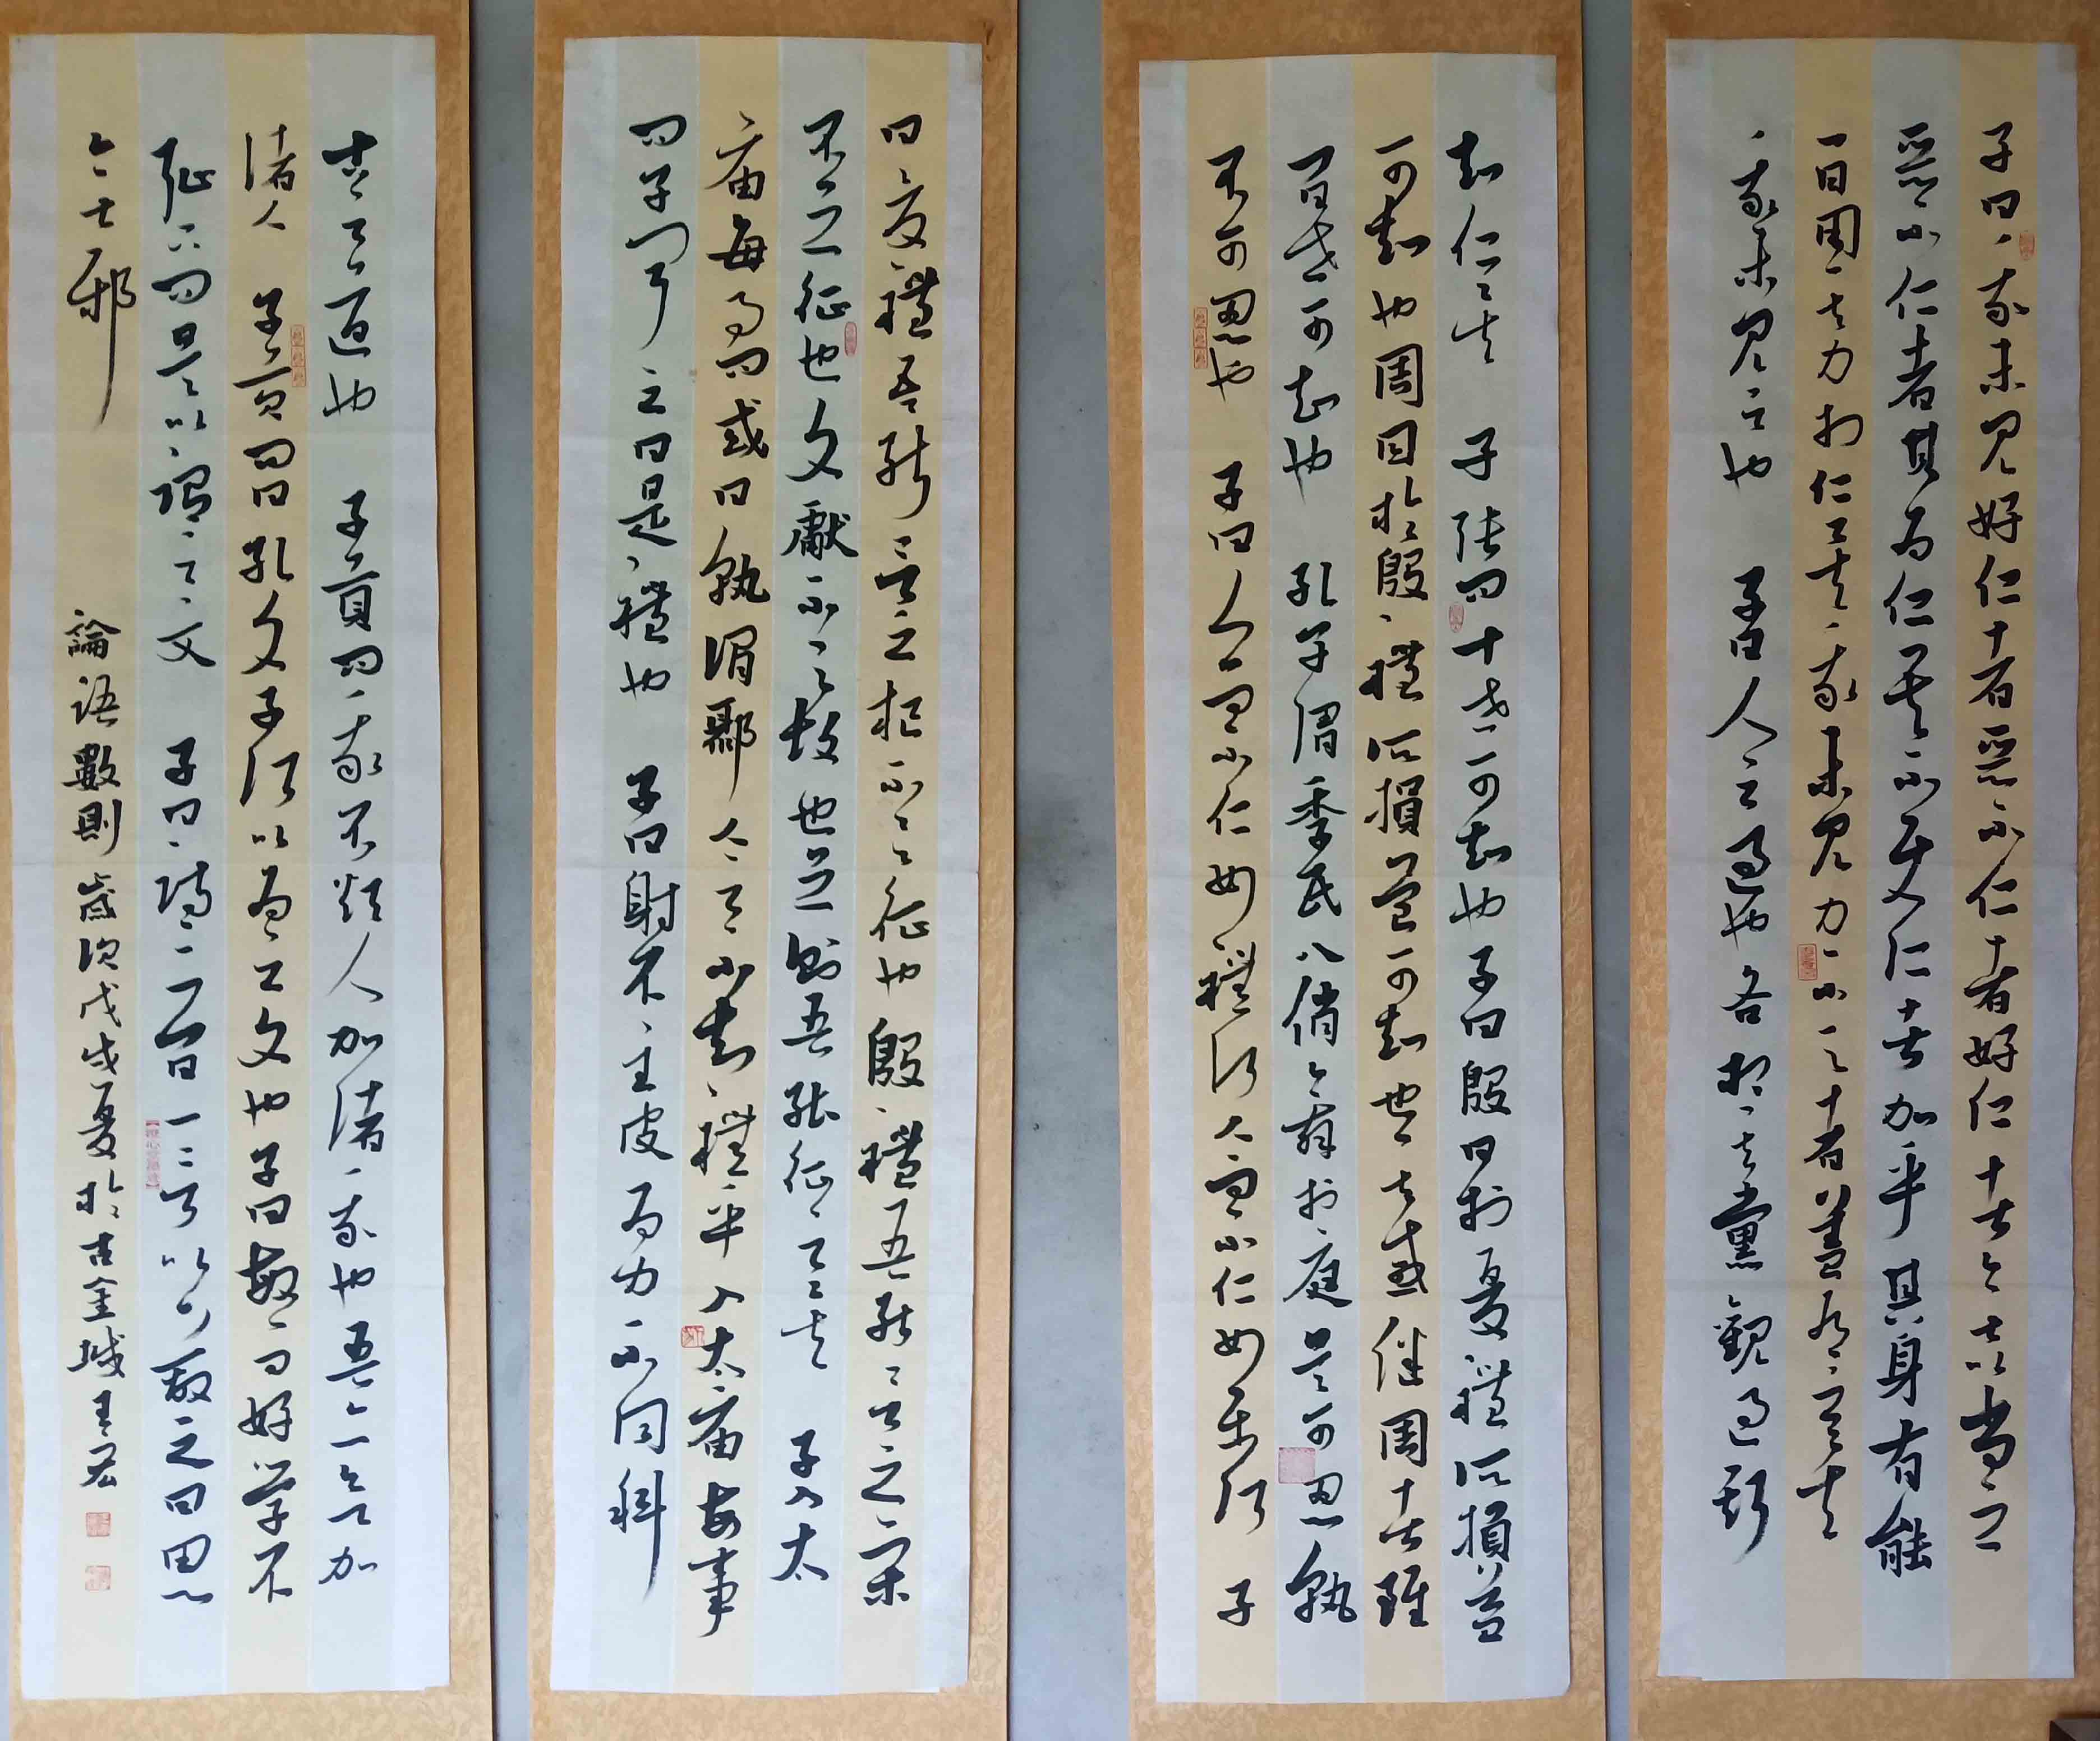 子曰我未見好仁者惡不仁者好仁者無以尚之
惡不仁者其為仁矣不使仁者加乎其身有能
一日用其力於仁矣我未見力不足者蓋有之矣
我未見之也 子曰人之過也各於其黨觀過斯
知仁矣 子張問十世可知也子曰殷因於夏禮所損益
可知也周因於殷禮所損益可知也其或繼周者雖
百世可知也 孔子謂季氏八佾舞於庭是可忍孰
不可忍也 子曰人而不仁如禮何人而不仁如樂何 子
曰夏禮吾能言之杞不足征也殷禮吾能言之宋
不足征也文獻不足故也足則吾能征之矣 子入太
廟每事問或曰孰謂鄹人之子知禮乎入太廟每事
問子聞之曰是禮也 子曰射不主皮為力不同科
古之道也 子貢曰我不欲人加諸我也吾亦欲無加
諸人 子貢問曰孔文子何以謂之文也子曰敏而好學不
恥下問是以謂之文 子曰詩三百一言以蔽之曰思
無邪 論語數則 歲次戊戌夏於古金城